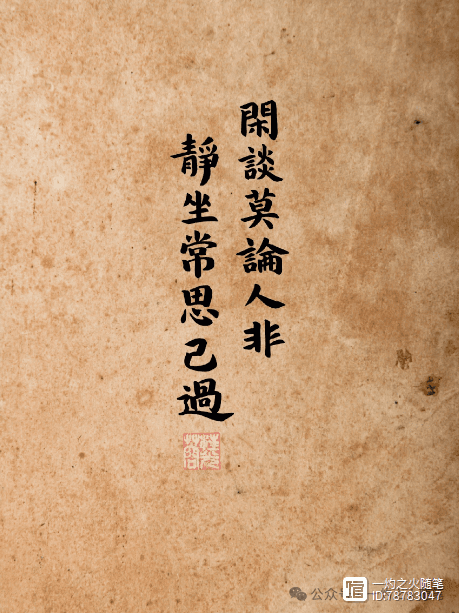 閑談莫論人非
靜坐常思己過
公众号
一灼之火随笔
ID:78783047